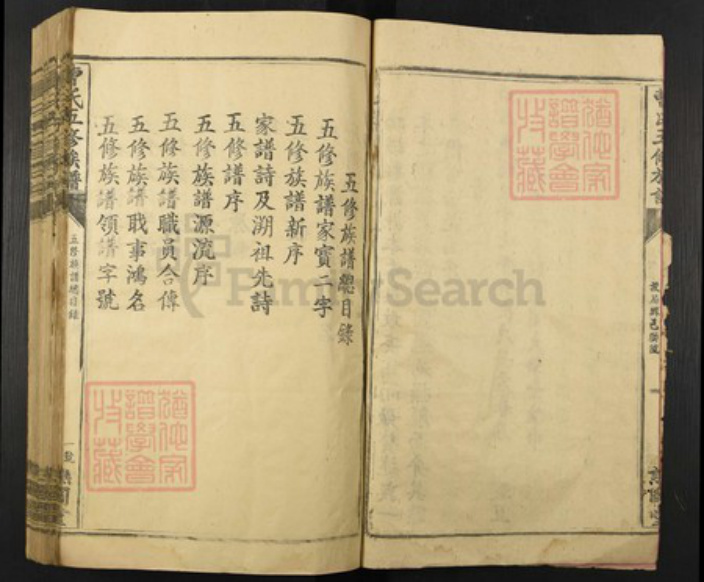 五修族譜總目錄
五修族譜家寶二字
五修族譜新序
家譜詩及溯祖先詩
五修譜序
五修族譜源流序
五修族譜職員合傳
五修族譜職事鴻名
五修族譜領譜字號
曹氏五修族譜
五修族譜總目錄
猶他家
譜學會
收藏
猶他家
譜學會
收藏
FamilySearch